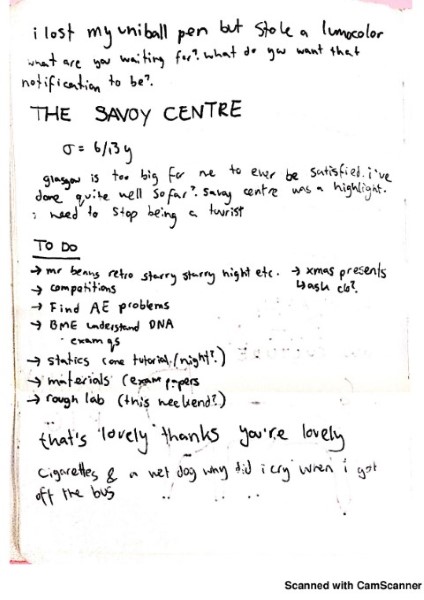 i lost my uniball pen but stole a lumocolor
what are you waiting for? what do you want that
notification to be?
THE SAVOY CENTRE
σ = 6/13 y
glasgow is too big for me to ever be satisfied. i've
done quite well so far? savoy centre was a highlight.
i need to stop being a tourist
TO DO
→ mr beans retro starry starry night etc. → xmas presents
→ competitions ↳ ask
→ Find AE problems
→ BME understand DNA
· exam qs
→ statics (one tutorial/night?)
→ materials (exam papers
→ rough lab (this weekend?)
that's 'lovely' thanks you're lovely
cigarettes & a wet dog why did i cry when i got
off the bus
Scanned with CamScanner